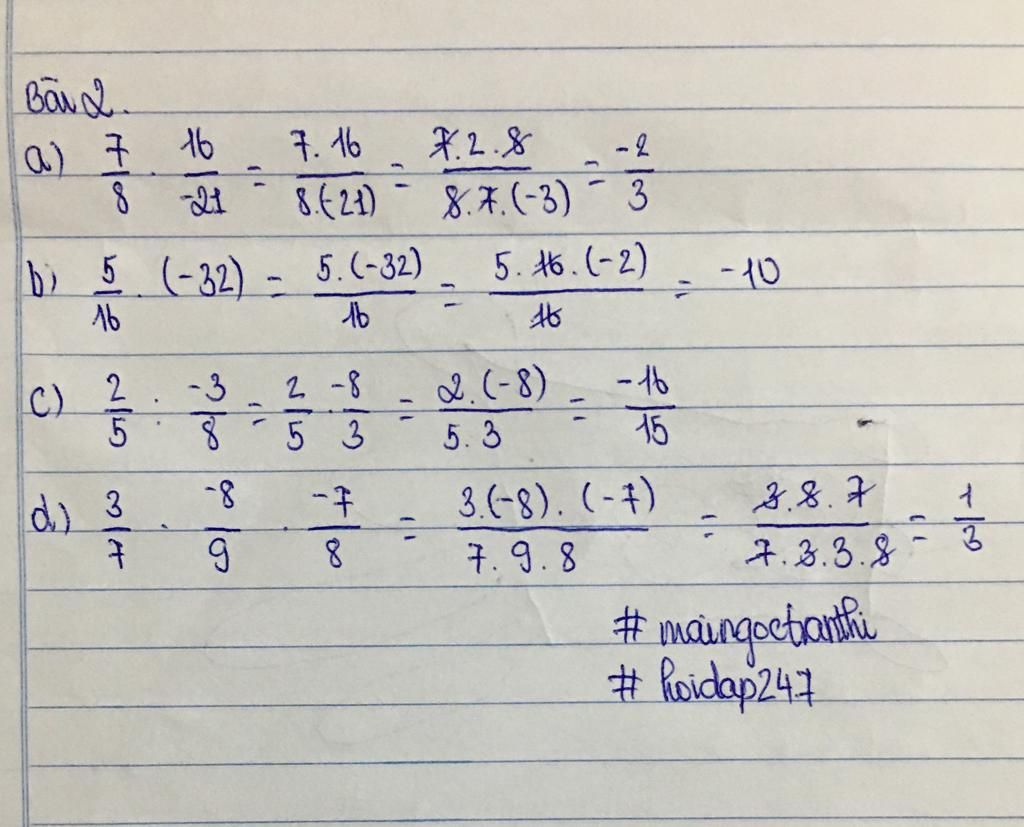 Bài 2.
a) 7/8 . 16/-21 = 7.16/8.(-21) = 7.2.8/8.7.(-3) = -2/3
b) 5/16 . (-32) = 5.(-32)/16 = 5.16.(-2)/16 = -10
c) 2/5 : -3/8 = 2/5 . -8/3 = 2.(-8)/5.3 = -16/15
d) 3/7 . -8/9 . -7/8 = 3.(-8).(-7)/7.9.8 = 3.8.7/7.3.3.8 = 1/3
# maingoctranthi
# hoidap247